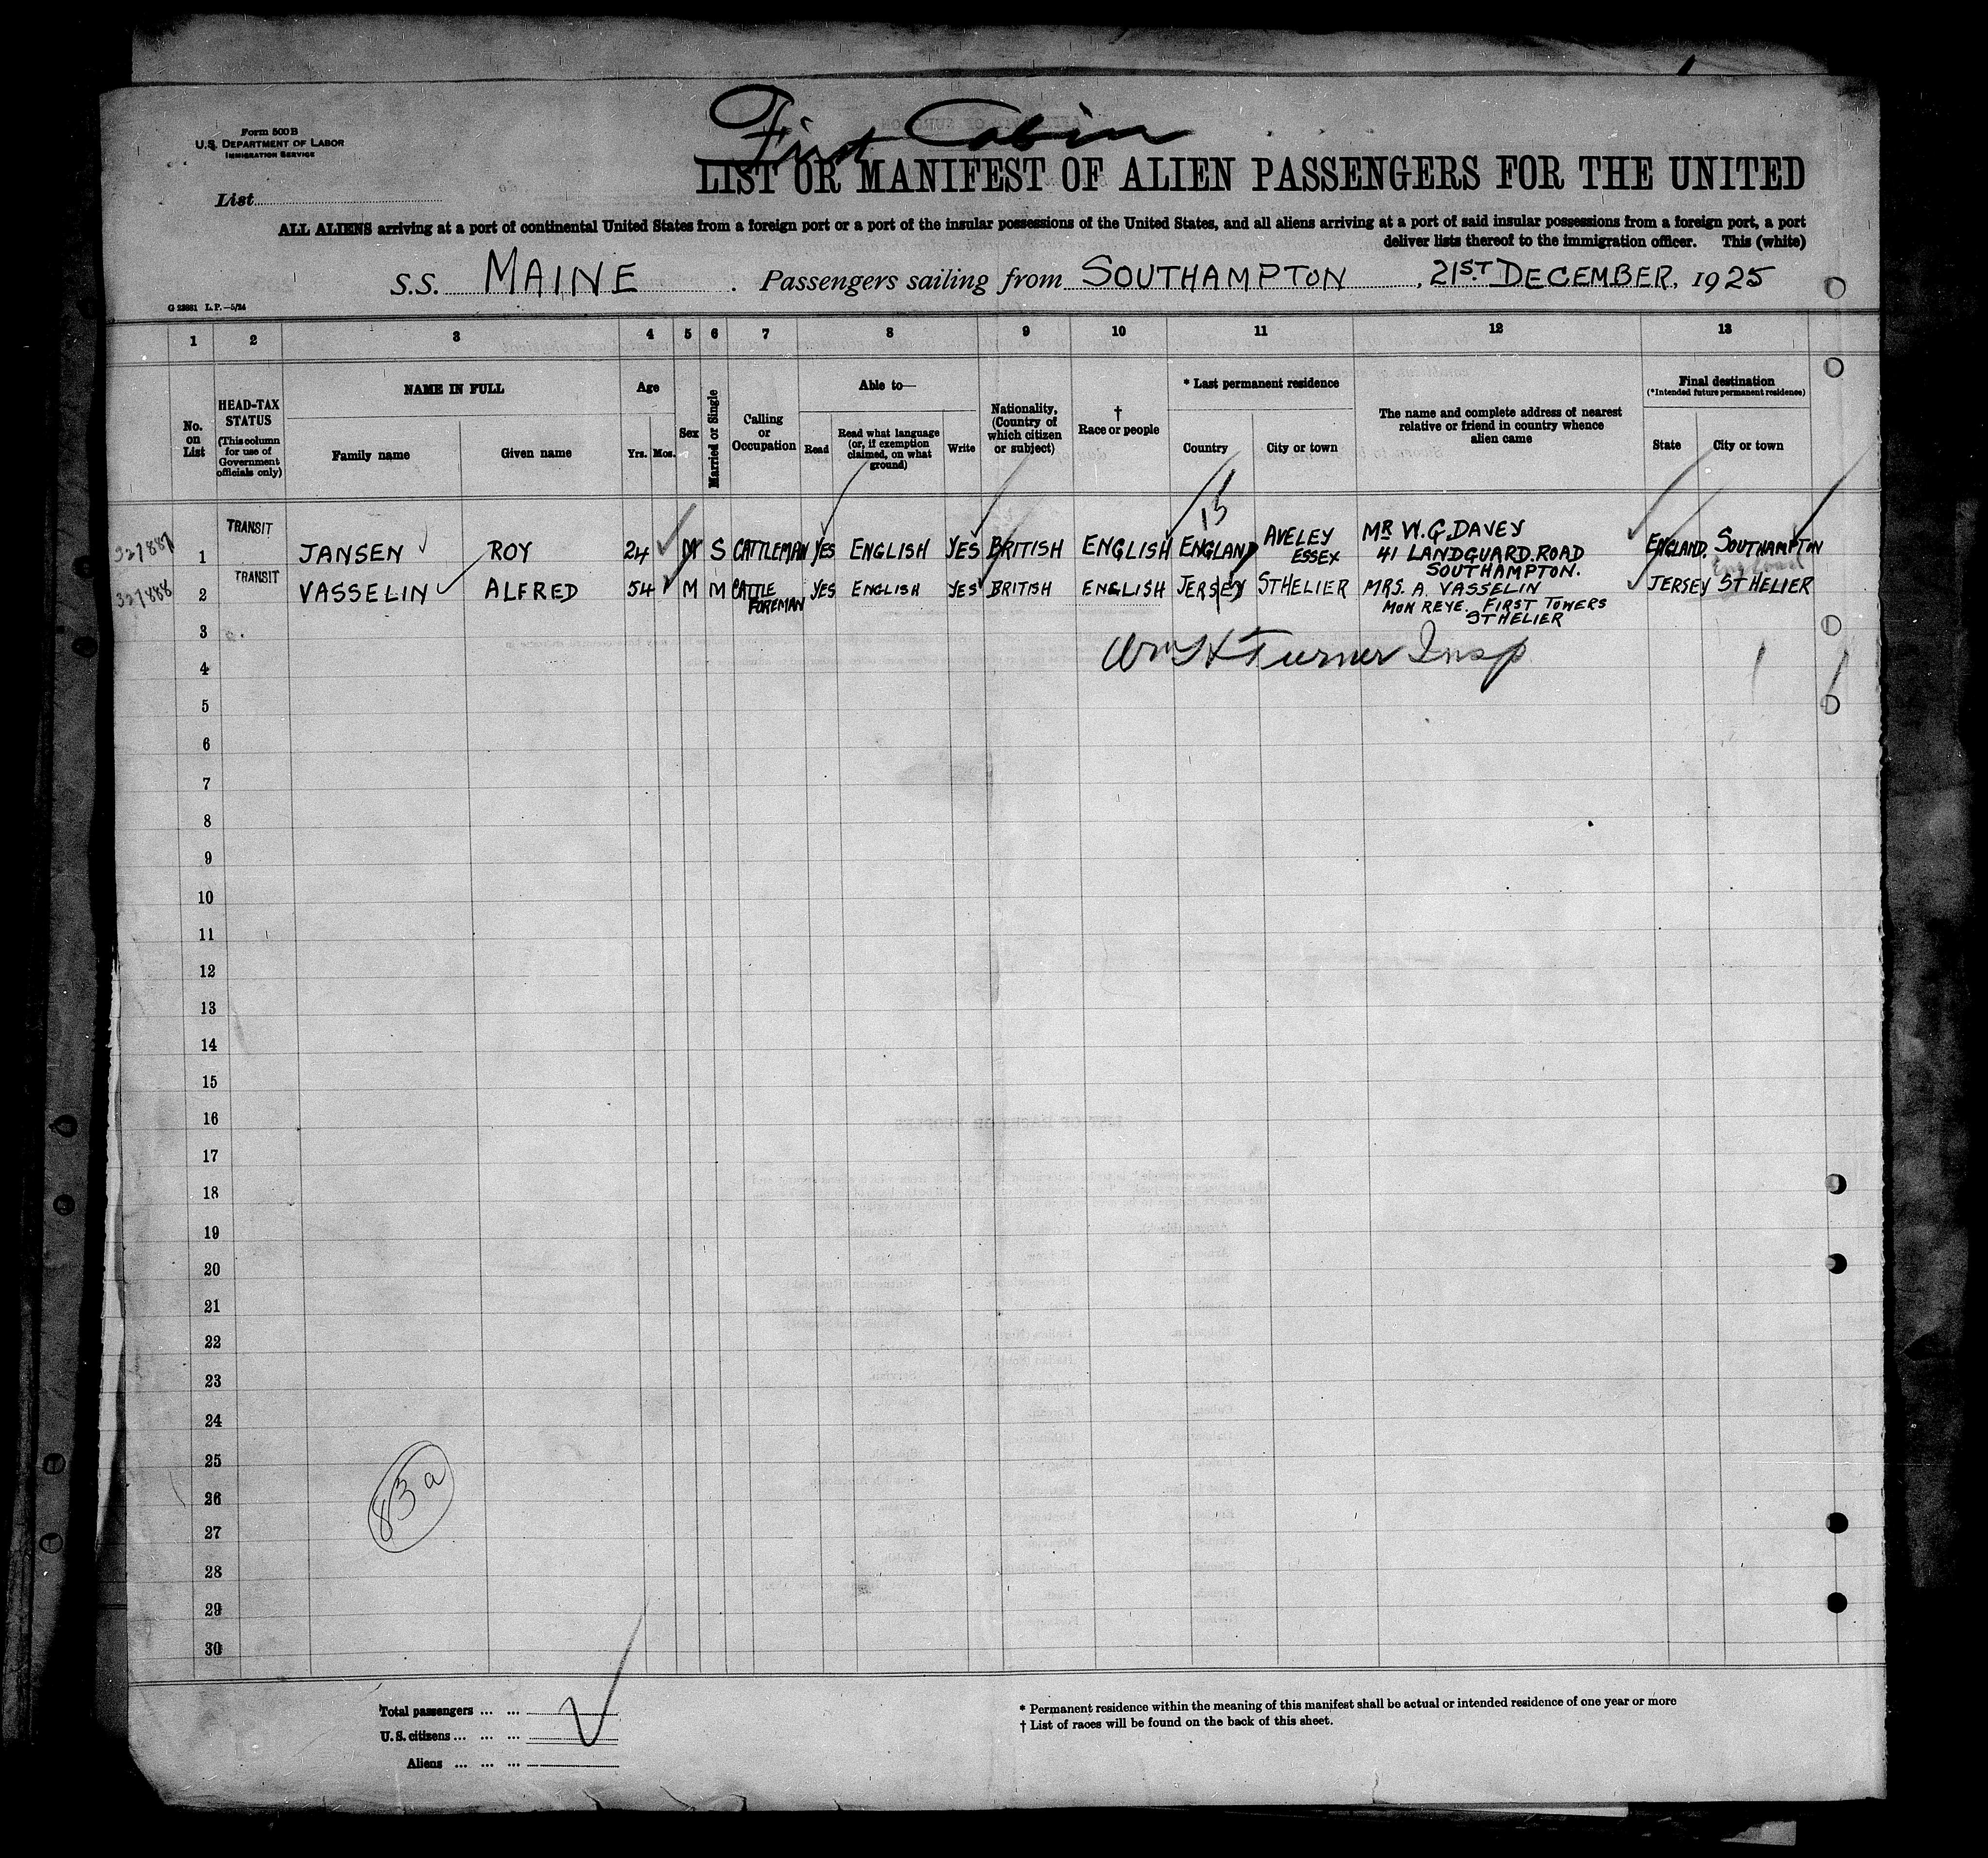 First Cabin
Form 500 B
U.S. DEPARTMENT OF LABOR
IMMIGRATION SERVICE
LIST OR MANIFEST OF ALIEN PASSENGERS FOR THE UNITED
List
ALL ALIENS arriving at a port of continental United States from a foreign port or a port of the insular possessions of the United States, and all aliens arriving at a port of said insular possessions from a foreign port, a port
deliver lists thereof to the immigration officer. This (white)
S.S. MAINE. Passengers sailing from SOUTHAMPTON, 21ST DECEMBER, 1925
G 23881 L.P.—5/24
1 2 3 4 5 6 7 8 9 10 11 12 13
No. on List
HEAD-TAX STATUS
(This column for use of Government officials only)
NAME IN FULL
Family name
Given name
Age
Yrs. Mos.
Sex
Married or Single
Calling or Occupation
Able to—
Read
Read what language (or, if exemption claimed, on what ground)
Write
Nationality, (Country of which citizen or subject)
† Race or people
* Last permanent residence
Country
City or town
The name and complete address of nearest relative or friend in country whence alien came
Final destination
(*Intended future permanent residence)
State
City or town
13
327887 1 TRANSIT JANSEN ROY 24 M S CATTLEMAN YES ENGLISH YES BRITISH ENGLISH ENGLAND AVELEY ESSEX MR W.G. DAVEY 41 LANDGUARD ROAD SOUTHAMPTON. ENGLAND. SOUTHAMPTON
England
327888 2 TRANSIT VASSELIN ALFRED 54 M M CATTLE FOREMAN YES ENGLISH YES BRITISH ENGLISH JERSEY ST HELIER MRS. A. VASSELIN MON REYE. FIRST TOWERS ST HELIER JERSEY ST HELIER
3
Wm H Turner Insp
4
5
6
7
8
9
10
11
12
13
14
15
16
17
18
19
20
21
22
23
24
25
26
27
28
29
30
83a
Total passengers ... ...
U.S. citizens ... ... ...
Aliens ... ... ...
* Permanent residence within the meaning of this manifest shall be actual or intended residence of one year or more
† List of races will be found on the back of this sheet.